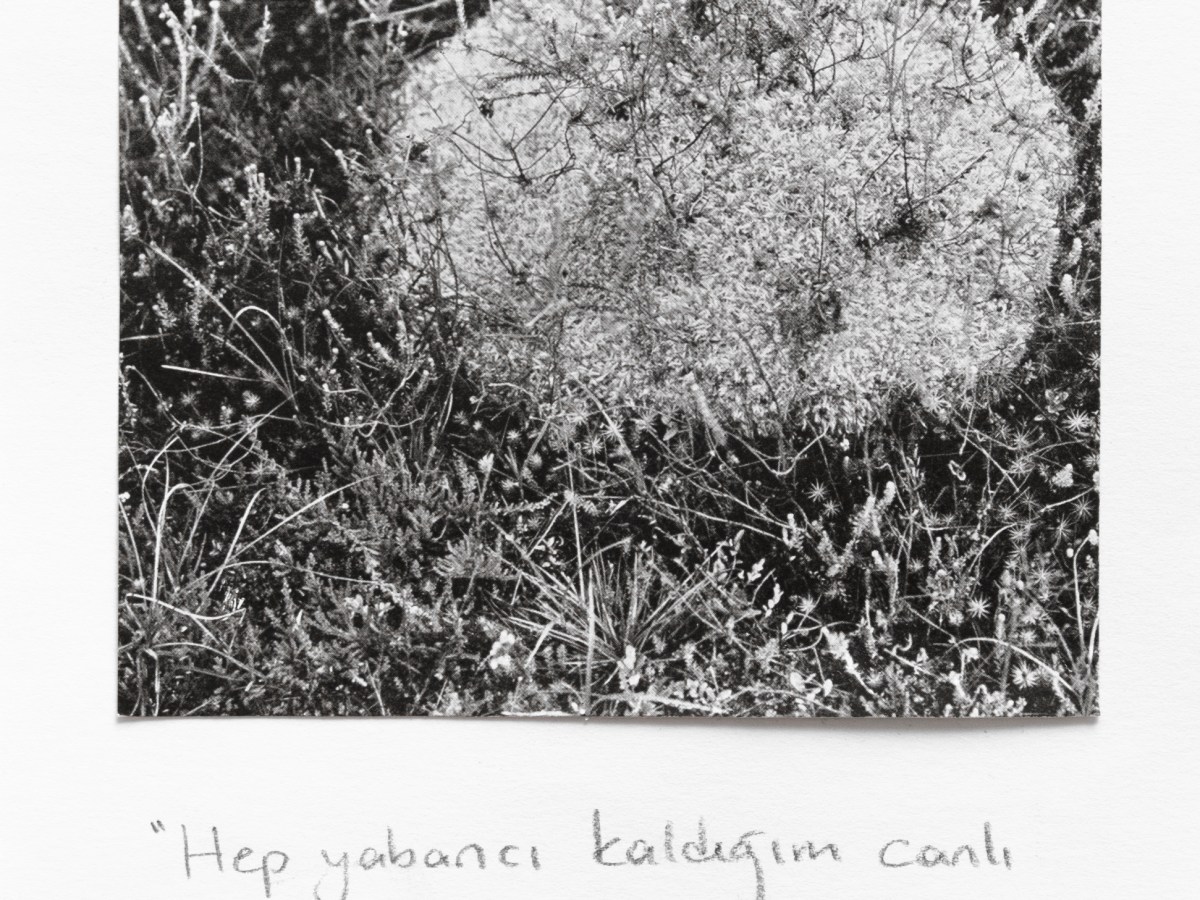 "Hep yabancı kaldığım canlı